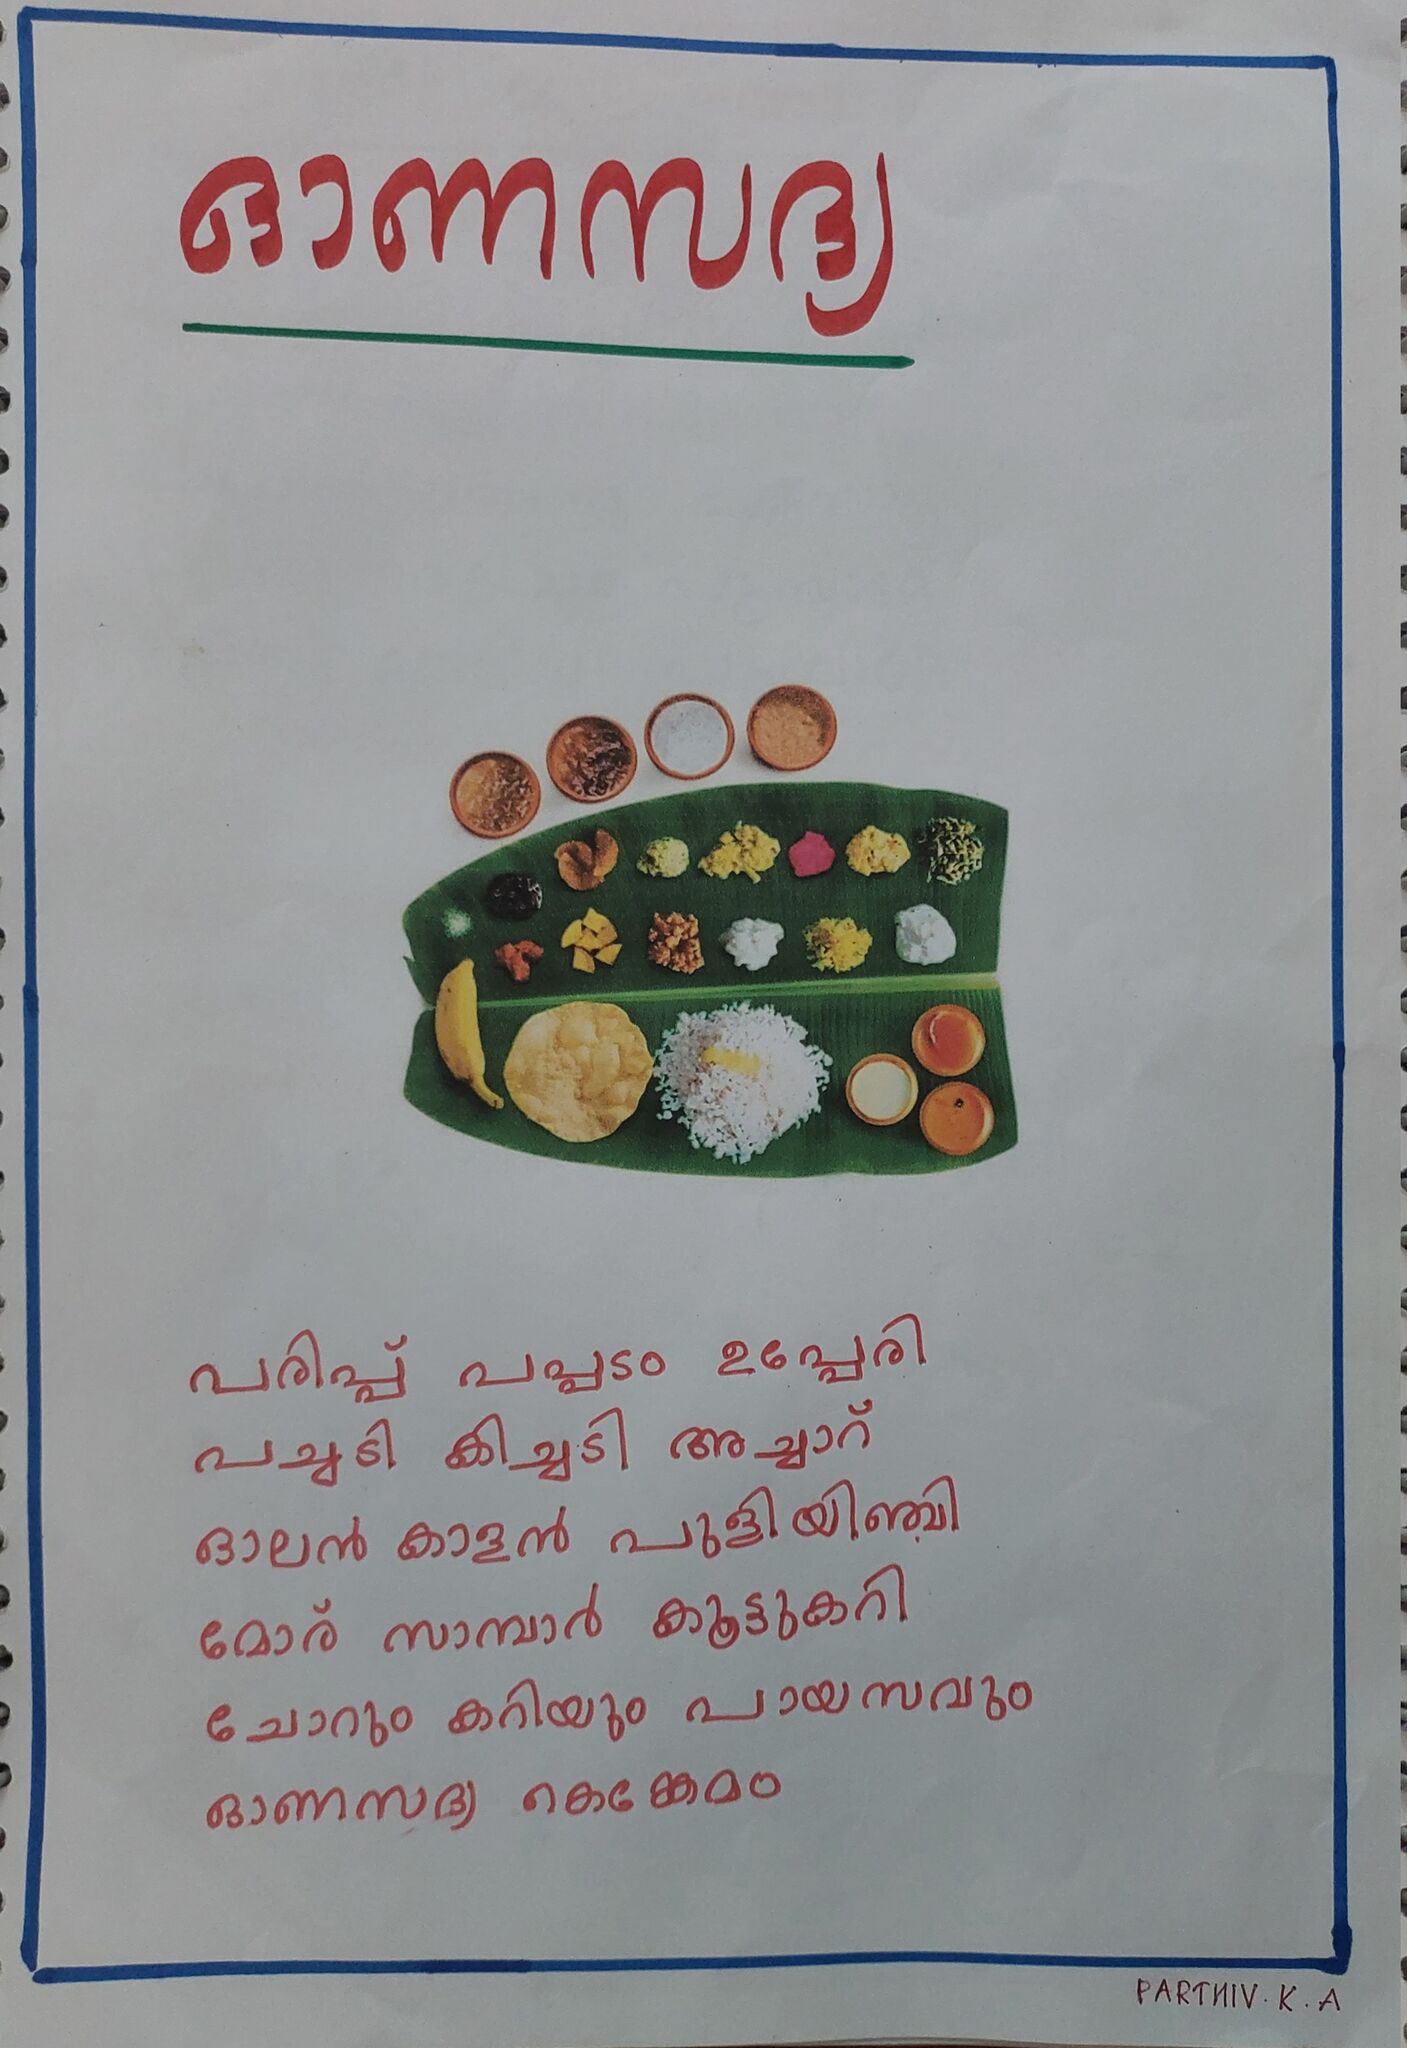 ഓണസദ്യ
പരിപ്പ് പപ്പടം ഉപ്പേരി
പച്ചടി കിച്ചടി അച്ചാറ്
ഓലൻ കാളൻ പുളിയിഞ്ചി
മോര് സാമ്പാർ കൂട്ടുകറി
ചോറും കറിയും പായസവും
ഓണസദ്യ കെങ്കേമം
PARTHIV. K. A